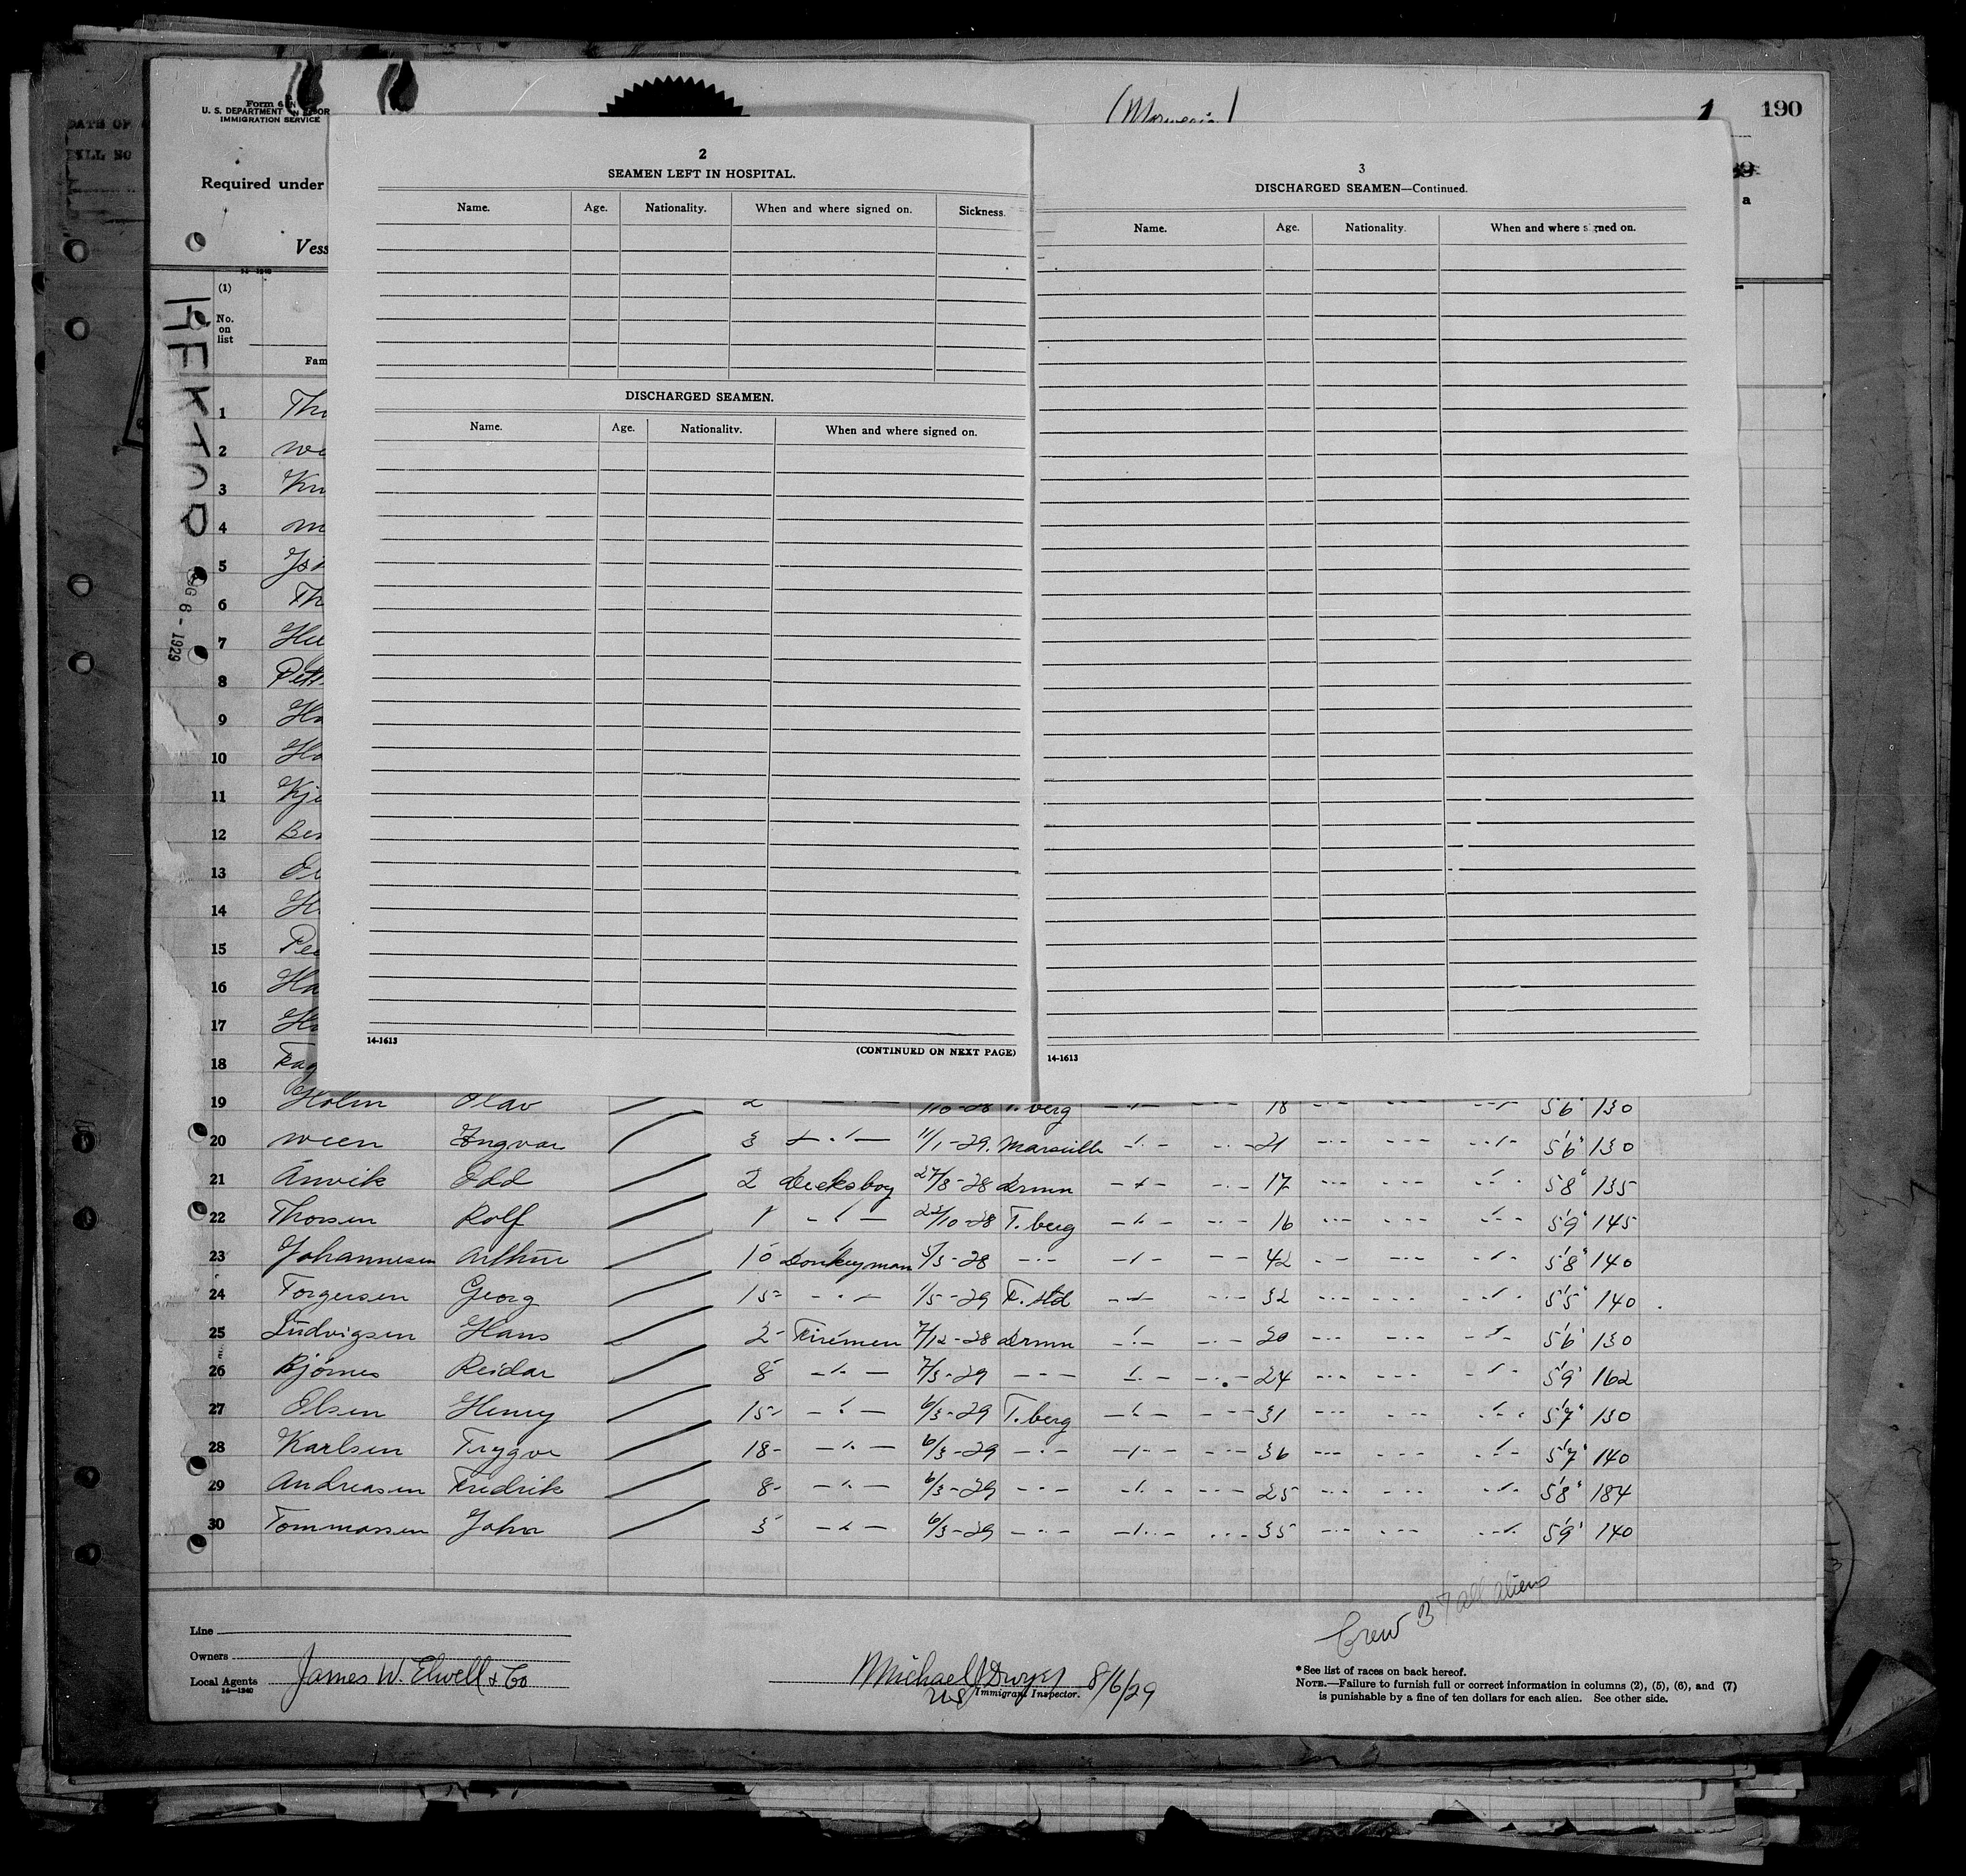 (Norwegian)
1 190
Form 6
U. S. DEPARTMENT OF LABOR
IMMIGRATION SERVICE
DATE OF
Required under
Vess
14-1240
HEKTOR
AUG 6 - 1929
(1)
No.
on
list
Fam
2
SEAMEN LEFT IN HOSPITAL.
Name. Age. Nationality. When and where signed on. Sickness.
DISCHARGED SEAMEN.
Name. Age. Nationality. When and where signed on.
14-1613
(CONTINUED ON NEXT PAGE)
3
DISCHARGED SEAMEN—Continued.
Name. Age. Nationality. When and where signed on.
14-1613
1 Th
2 We
3 Kn
4 M
5 Js
6 Th
7 He
8 Pett
9 Ha
10 Ha
11 Kje
12 Ber
13
14 H
15 Pe
16 Ha
17 H
18 Fag
19 Holm Olav 2 1/10-28 T.berg 18 5'6" 130
20 Ween Ingvar 3 11/1-29. Marseille 21 5'6" 130
21 Anvik Odd 2 Decksboy 27/8-28 Drmn 17 5'8" 135
22 Thorsen Rolf 1 23/10-28 T.berg 16 5'9" 145
23 Johannesen Arthur 10 Donkeyman 5/3-28 42 5'8" 140
24 Torgersen Georg 15 1/5-29 F.std 32 5'5" 140
25 Ludvigsen Hans 2 Firemen 7/12-28 Drmn 20 5'6" 130
26 Bjørnes Reidar 8 7/3-29 24 5'9" 162
27 Olsen Henry 15 6/3-29 T.berg 31 5'7" 130
28 Karlsen Trygve 18 6/3-29 36 5'7" 140
29 Andreasen Fredrik 8 6/3-29 25 5'8" 184
30 Tommassen John 3 6/3-29 35 5'9" 140
Crew 37 all aliens
Line
Owners
Local Agents James W. Elwell & Co
14-1240
Michael J Dwyer 8/6/29
US Immigrant Inspector.
*See list of races on back hereof.
NOTE.—Failure to furnish full or correct information in columns (2), (5), (6), and (7)
is punishable by a fine of ten dollars for each alien. See other side.